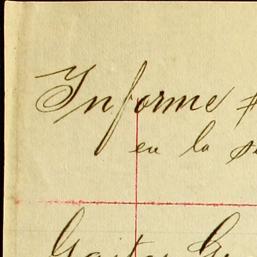 Informe
en la
Gastos